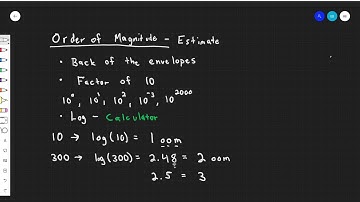 Order of Magnitude - Estimate
• Back of the envelopes
• Factor of 10
10⁰, 10¹, 10², 10⁻³, 10²⁰⁰⁰
• Log - Calculator
10 → log(10) = 1 oom
300 → log(300) = 2.48 = 2 oom
2.5 = 3